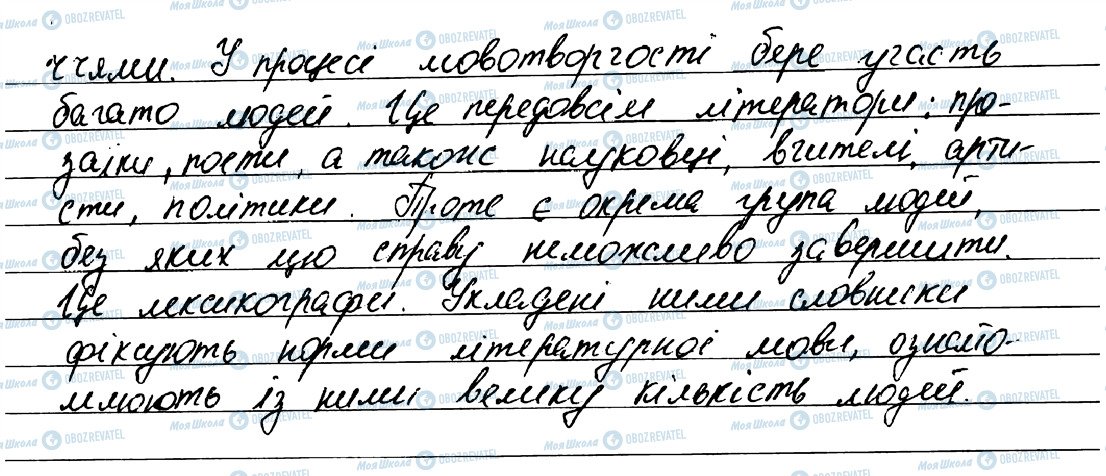 ччями. У процесі мовотворчості бере участь
багато людей. Це передовсім літератори: про-
заїки, поети, а також науковці, вчителі, арти-
сти, політики. Проте є окрема група людей,
без яких цю справу неможливо завершити.
Це лексикографи. Укладені ними словники
фіксують норми літературної мови, ознайо-
млюють із ними велику кількість людей.